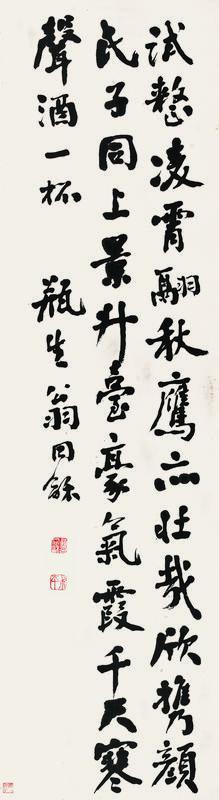 試整凌霄翮秋鷹亦壯哉欣攜顏
氏子同上景升臺豪氣霞千尺寒
聲酒一杯
瓶生翁同龢